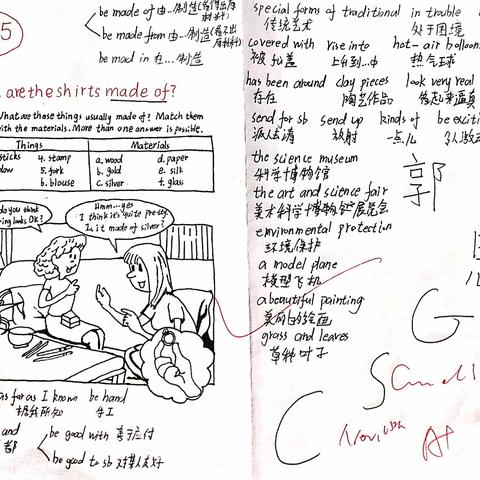 5
be made of 由…制造(看得出原材料)
be made from 由…制造(看不出原材料)
be mad in 在…制造
are the shirts made of?
What are these things usually made of? Match them
with the materials. More than one answer is possible.
Things Materials
sticks 4. stamp a. wood d. paper
dow 5. fork b. gold e. silk
6. blouse c. silver f. glass
do you think
ring looks OK?
Hmm...yes
I think it's quite pretty.
Is it made of silver?
as far as I know be hand
据我所知
and
都
be good with 善于应付
be good to sb 对某人友好
special forms of traditional in trouble
传统艺术 处于困境
covered with rise into hot-air balloon
被 盖 上升到…中 热气球
has been around clay pieces look very real
存在 陶艺作品 看起来逼真
send for sb send up kinds of be exciti
派人去请 放射 一点儿
the science museum
科学博物馆
the art and science fair
美术科学博物馆展览会
environmental protection
环境保护
a model plane
模型飞机
a beautiful painting
美丽的绘画
grass and leaves
草和叶子
郭
G
S
C
A+